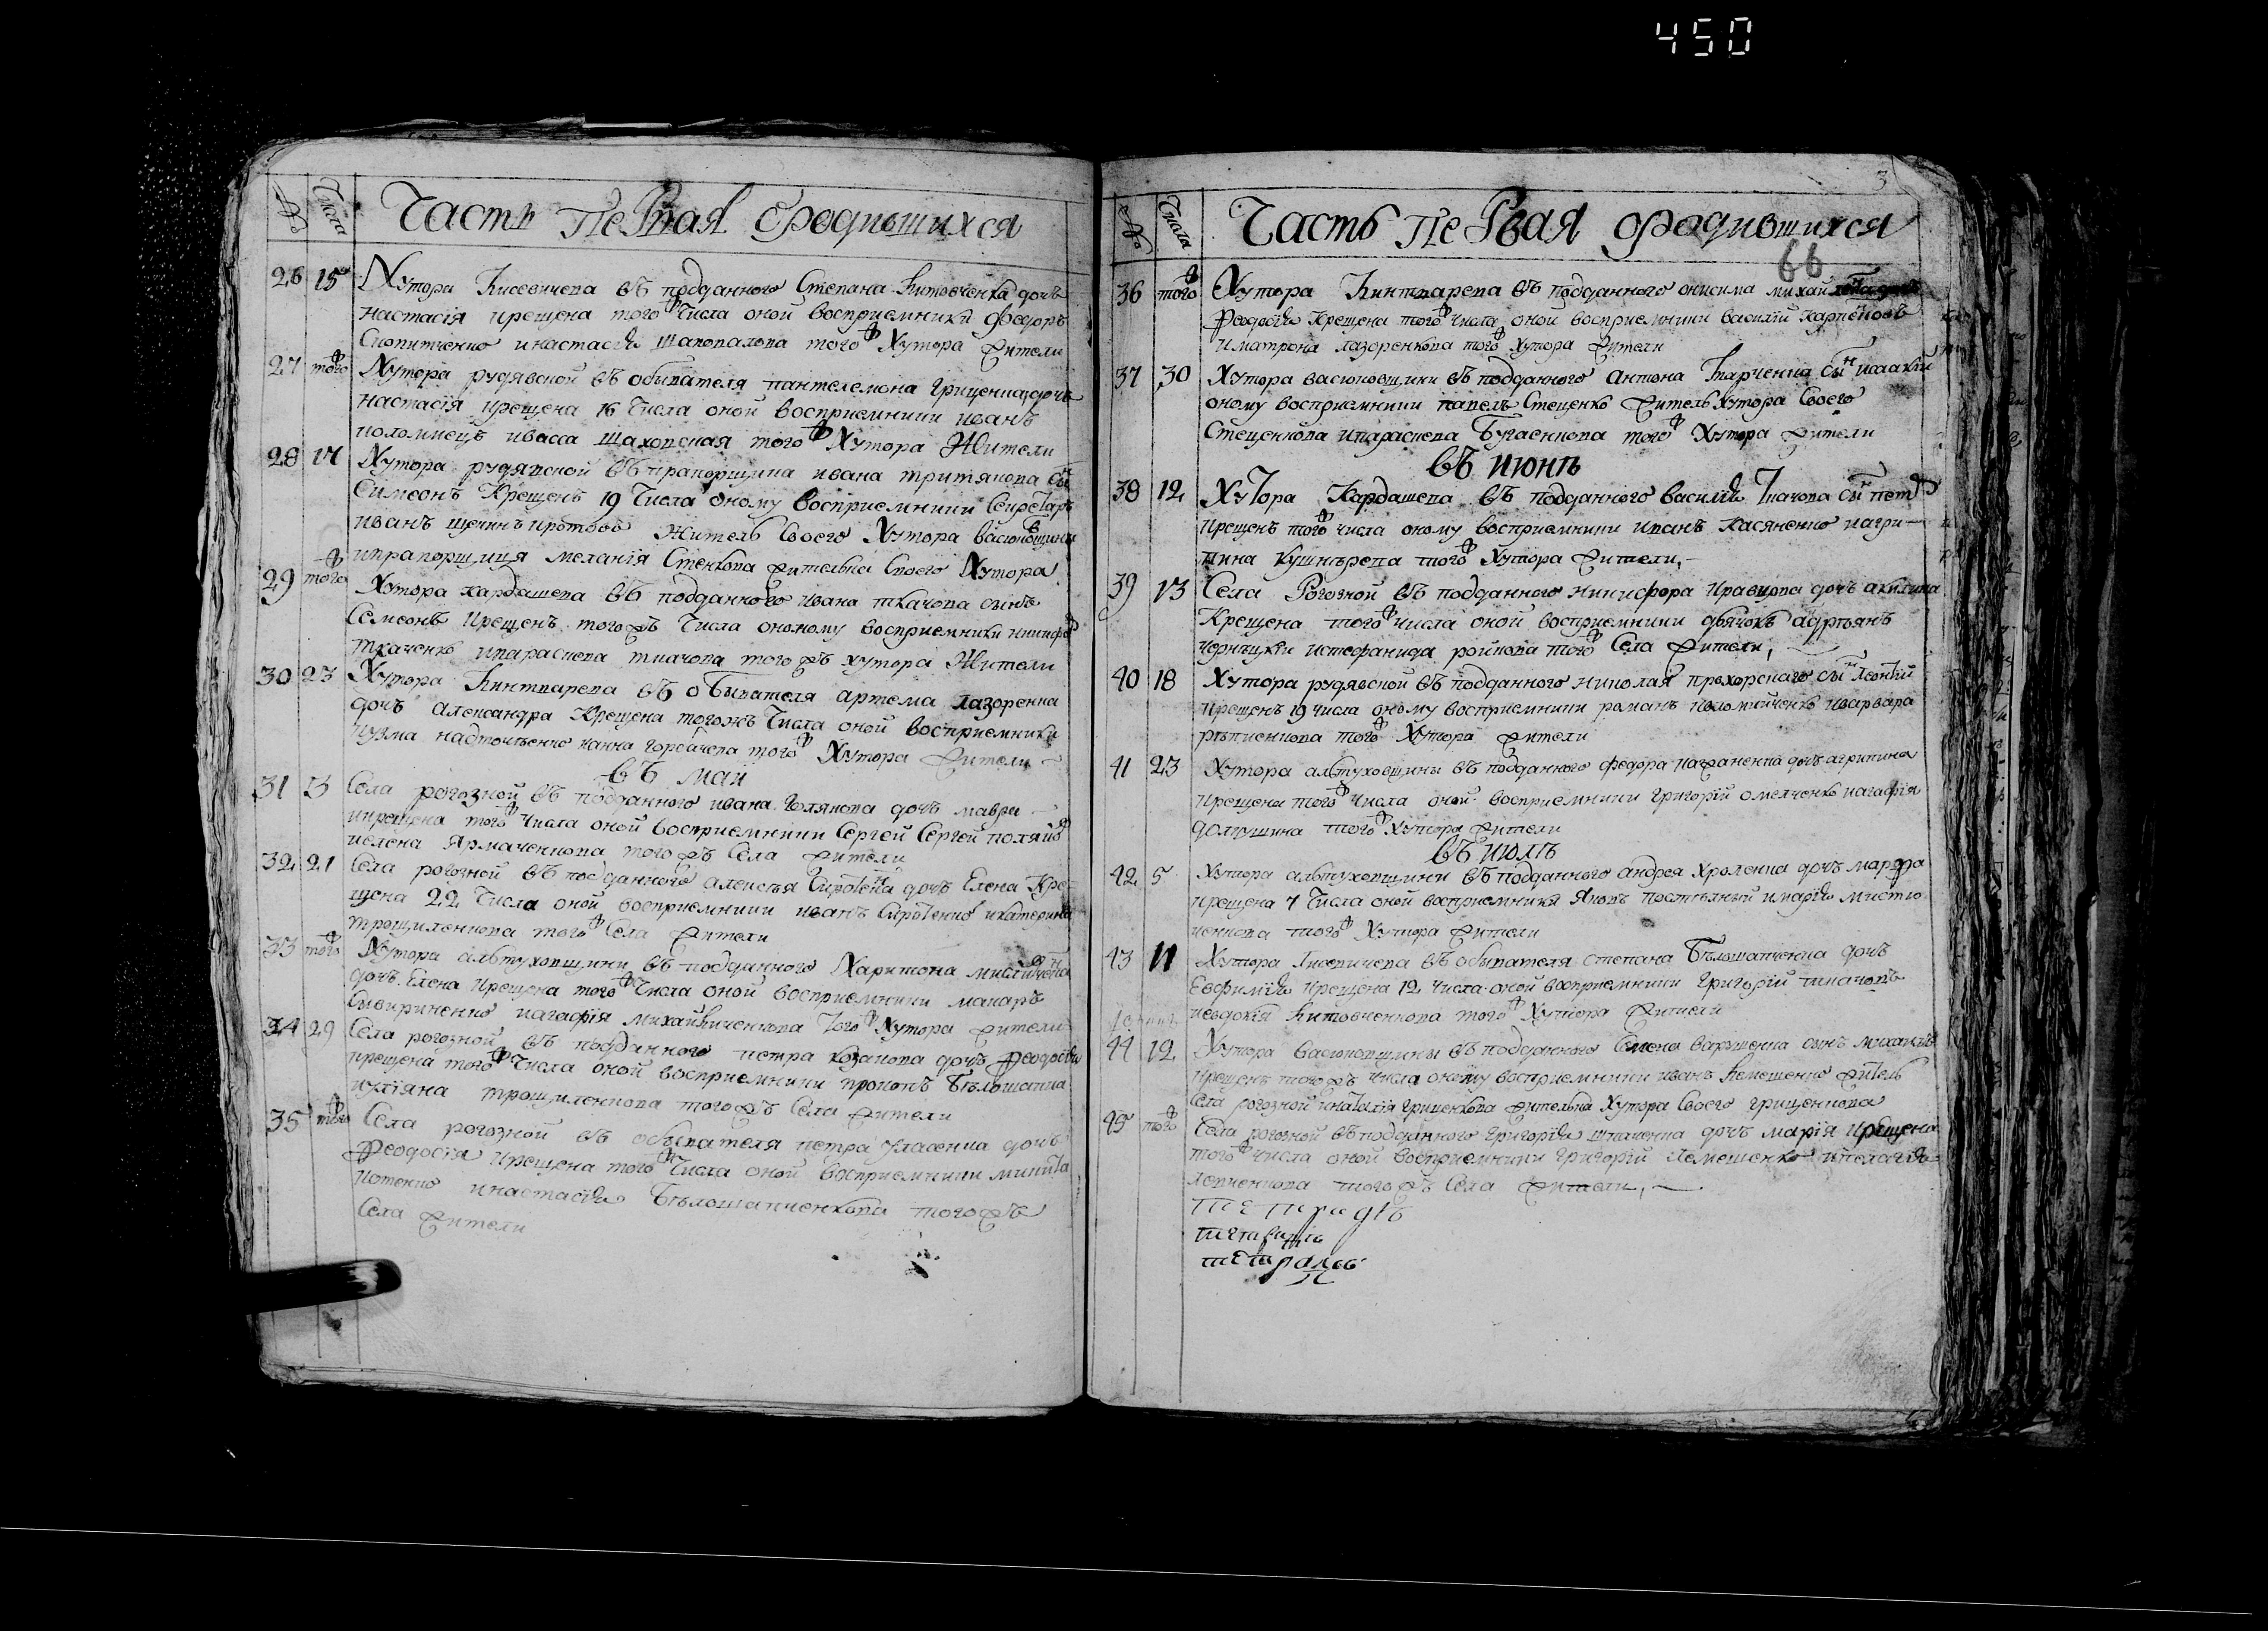 450
№ Числа Часть Первая Ородившихся
26 15 Хутора Лисевичева въ подданного Степана Китовченка дочь
настасія крещена того ж Числа оной восприемники феодоръ
инастасія Шаповалова того ж Хутора жители
27 того ж Хутора рудявской въ обивателя пантелемона Гриценка дочь
настасія крещена 16 Числа оной восприемники иванъ
коломиецъ ивасса шаховская того ж Хутора Жители
28 17 Хутора рудявской въ прапорщика ивана тритякова сынъ
Симеонъ Крещенъ 19 Числа оному восприемники Секретаръ
иванъ Житель Своего Хутора васюковщини
ипрапорщиця меланія Стенкова жителька Своего Хутора
29 того ж Хутора кардашева въ подданного ивана ткачова сынъ
Семеонъ Крещенъ того жъ Числа ононому восприемники никифоръ
ткаченко ипараскева ткачова того жъ хутора Жители
30 23 Хутора Кинтварева въ обивателя артема лазоренка
дочъ александра Крещена тогожъ Числа оной восприемники
кузма надточіенко ианна того ж Хутора жители
въ май
31 3 Села рогозной въ подданного ивана Голякова дочъ мавра
икрещена того ж Числа оной восприемники Сергей Сергей
иелена Ярмаченкова того жъ Села жители
32 21 Села рогозной въ подданного алексея Сиротенка дочъ Елена Кре-
щена 22 Числа оной восприемники иванъ Сиротенко икатерина
трощиленкова того ж Села жители
33 того ж Хутора алътуховщини въ подданного Харитона
дочъ Елена крещена того ж Числа оной восприемники макаръ
Сивириненко иагафія михайличенкова того ж Хутора жители
34 29 Села рогозной въ подданного петра козакова дочъ феодосія
крещена того ж Числа оной восприемники прокопъ Бѣлошапка
иуліяна трощиленкова того жъ Села жители
35 того ж Села рогозной въ обивателя петра Уласенка дочъ
феодосія крещена того ж Числа оной восприемники микита
котенко инастасія Бѣлошапченкова того жъ
Села жители
3
№ Числа Часть Первая ородившихся
66
36 того ж Хутора Кинтварева въ подданного онисима
феодосія Крещена того ж числа оной восприемники василій карпенковъ
иматрона лазоренкова того ж хутора жители
37 30 Хутора васюковщини въ подданного антона Харченка сынъ исаакій
оному восприемники павелъ Стещенко житель Хутора Своего
Стещенкова ипараскева Бугаенкова того ж Хутора жители
въ июнѣ
38 12 Хутора Кардашева въ подданного василія Ткачова сынъ петръ
крещенъ того ж числа оному восприемники иванъ Касяненко иагри-
пина кушнѣрева того ж Хутора жители,
39 13 Села Рогозной въ подданного никифора Кравцова дочъ акилина
Крещена того ж числа оной восприемники дьячокъ адріянъ
чернѣцкій истефанида ройкова того ж Села жители,
40 18 Хутора рудявской въ подданного николая прохорскаго сынъ леонтій
крещенъ 19 числа оному восприемники романъ коломийченко иварвара
рѣпиенкова того ж Хутора жители
41 23 Хутора алътуховщини въ подданного федора дочъ агрипина
крещена того ж числа оной восприемники григорій омелченко иагафія
долгушина того ж Хутора жители
въ июлѣ
42 5 Хутора алътуховщини въ подданного андрея Хроленка дочъ марфа
крещена 7 Числа оной восприемники Яковъ имарія
ченкова того ж Хутора жители
43 11 Хутора Лисевичева въ обивателя степана Бѣлошапченка дочъ
Евфимія крещена 12 числа оной восприемники Григорій ткачовъ
иевдокія Китовченкова того ж Хутора жители
44 12 Хутора васюковщины въ подданного Симена варушенка сынъ михаилъ
крещенъ того жъ числа оному восприемники иванъ Лемешенко житель
Села рогозной инаталія гриценкова жителька Хутора Своего гриценкова
45 того ж Села рогозной въ подданного григорія шпаченка дочъ марія крещена
того ж числа оной восприемники григорій Лемешенко ипелагія
левченкова того жъ Села жители,